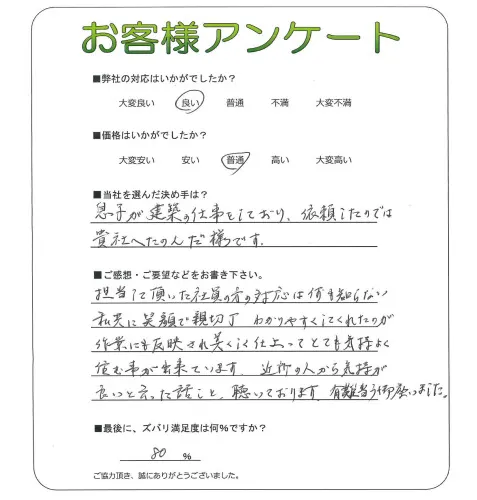 お客様アンケート
■弊社の対応はいかがでしたか？
大変良い 良い 普通 不満 大変不満
■価格はいかがでしたか？
大変安い 安い 普通 高い 大変高い
■当社を選んだ決め手は？
息子が建築の仕事をしており、依頼したのでは
貴社へたのんだ様です.
■ご感想・ご要望などをお書き下さい。
担当して頂いた社員の方の対応は何も知らない
私共に笑顔で親切丁 わかりやすくしてくれたのが
作業にも反映され美くしく仕上ってとても気持よく
住む事が出来ています. 近所の人から気持が
良いと言った話こと、聴いております. 有難う御座いました。
■最後に、ズバリ満足度は何％ですか？
80 %
ご協力頂き、誠にありがとうございました。